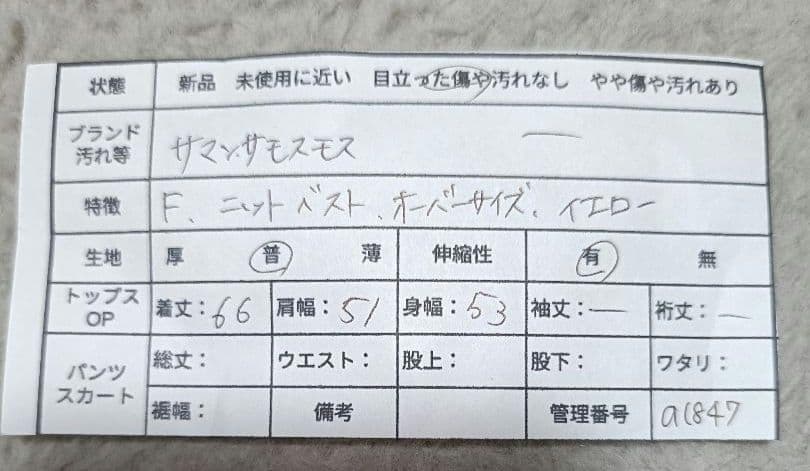 状態 新品 未使用に近い 目立った傷や汚れなし やや傷や汚れあり
ブランド
汚れ等 サマンサモスモス ー
特徴 F、ニットベスト、オーバーサイズ、イエロー
生地 厚 普 薄 伸縮性 有 無
トップス
OP 着丈：66 肩幅：51 身幅：53 袖丈：ー 裄丈：ー
パンツ
スカート 総丈： ウエスト： 股上： 股下： ワタリ：
裾幅： 備考 管理番号 a1847